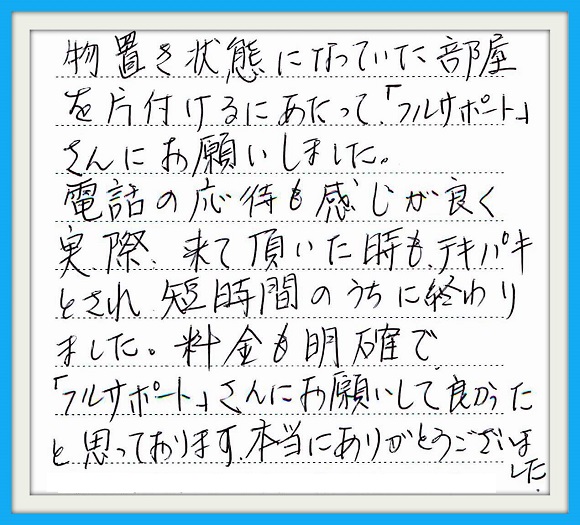 物置き状態になっていた部屋
を片付けるにあたって、「フルサポート」
さんにお願いしました。
電話の応待も感じが良く
実際、来て頂いた時も、テキパキ
とされ 短時間のうちに終わり
ました。料金も明確で
「フルサポート」さんにお願いして良かった
と思っております。本当にありがとうございま
した.